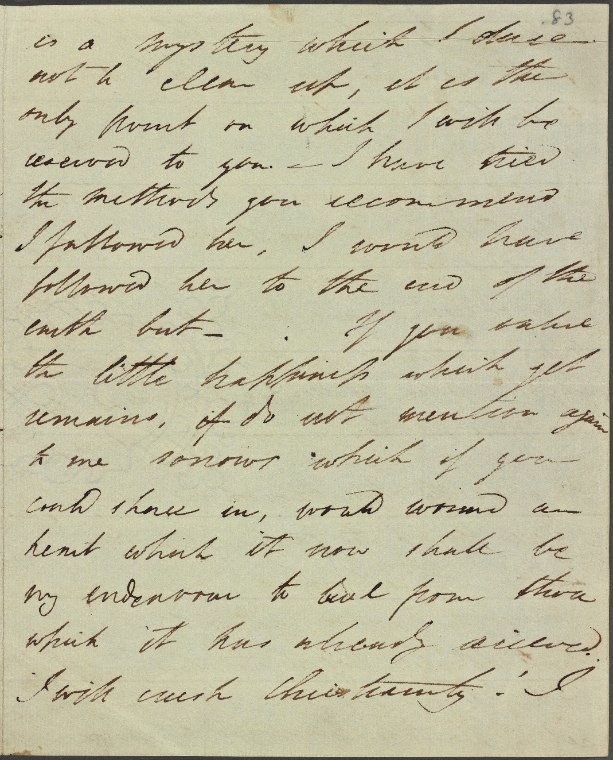 83
is a mystery which I dare
not to clear up, it is the
only point on which I will be
reserved to you. – I have tried
the methods you recommend
I followed her, I would have
followed her to the end of the
earth but – . If you value
the little happiness which yet
remains, if do not mention again
to me sorrows which if you
could share in, would wound a
heart which it now shall be
my endeavour to heal from those
which it has already received.
I will crush Christianity! I